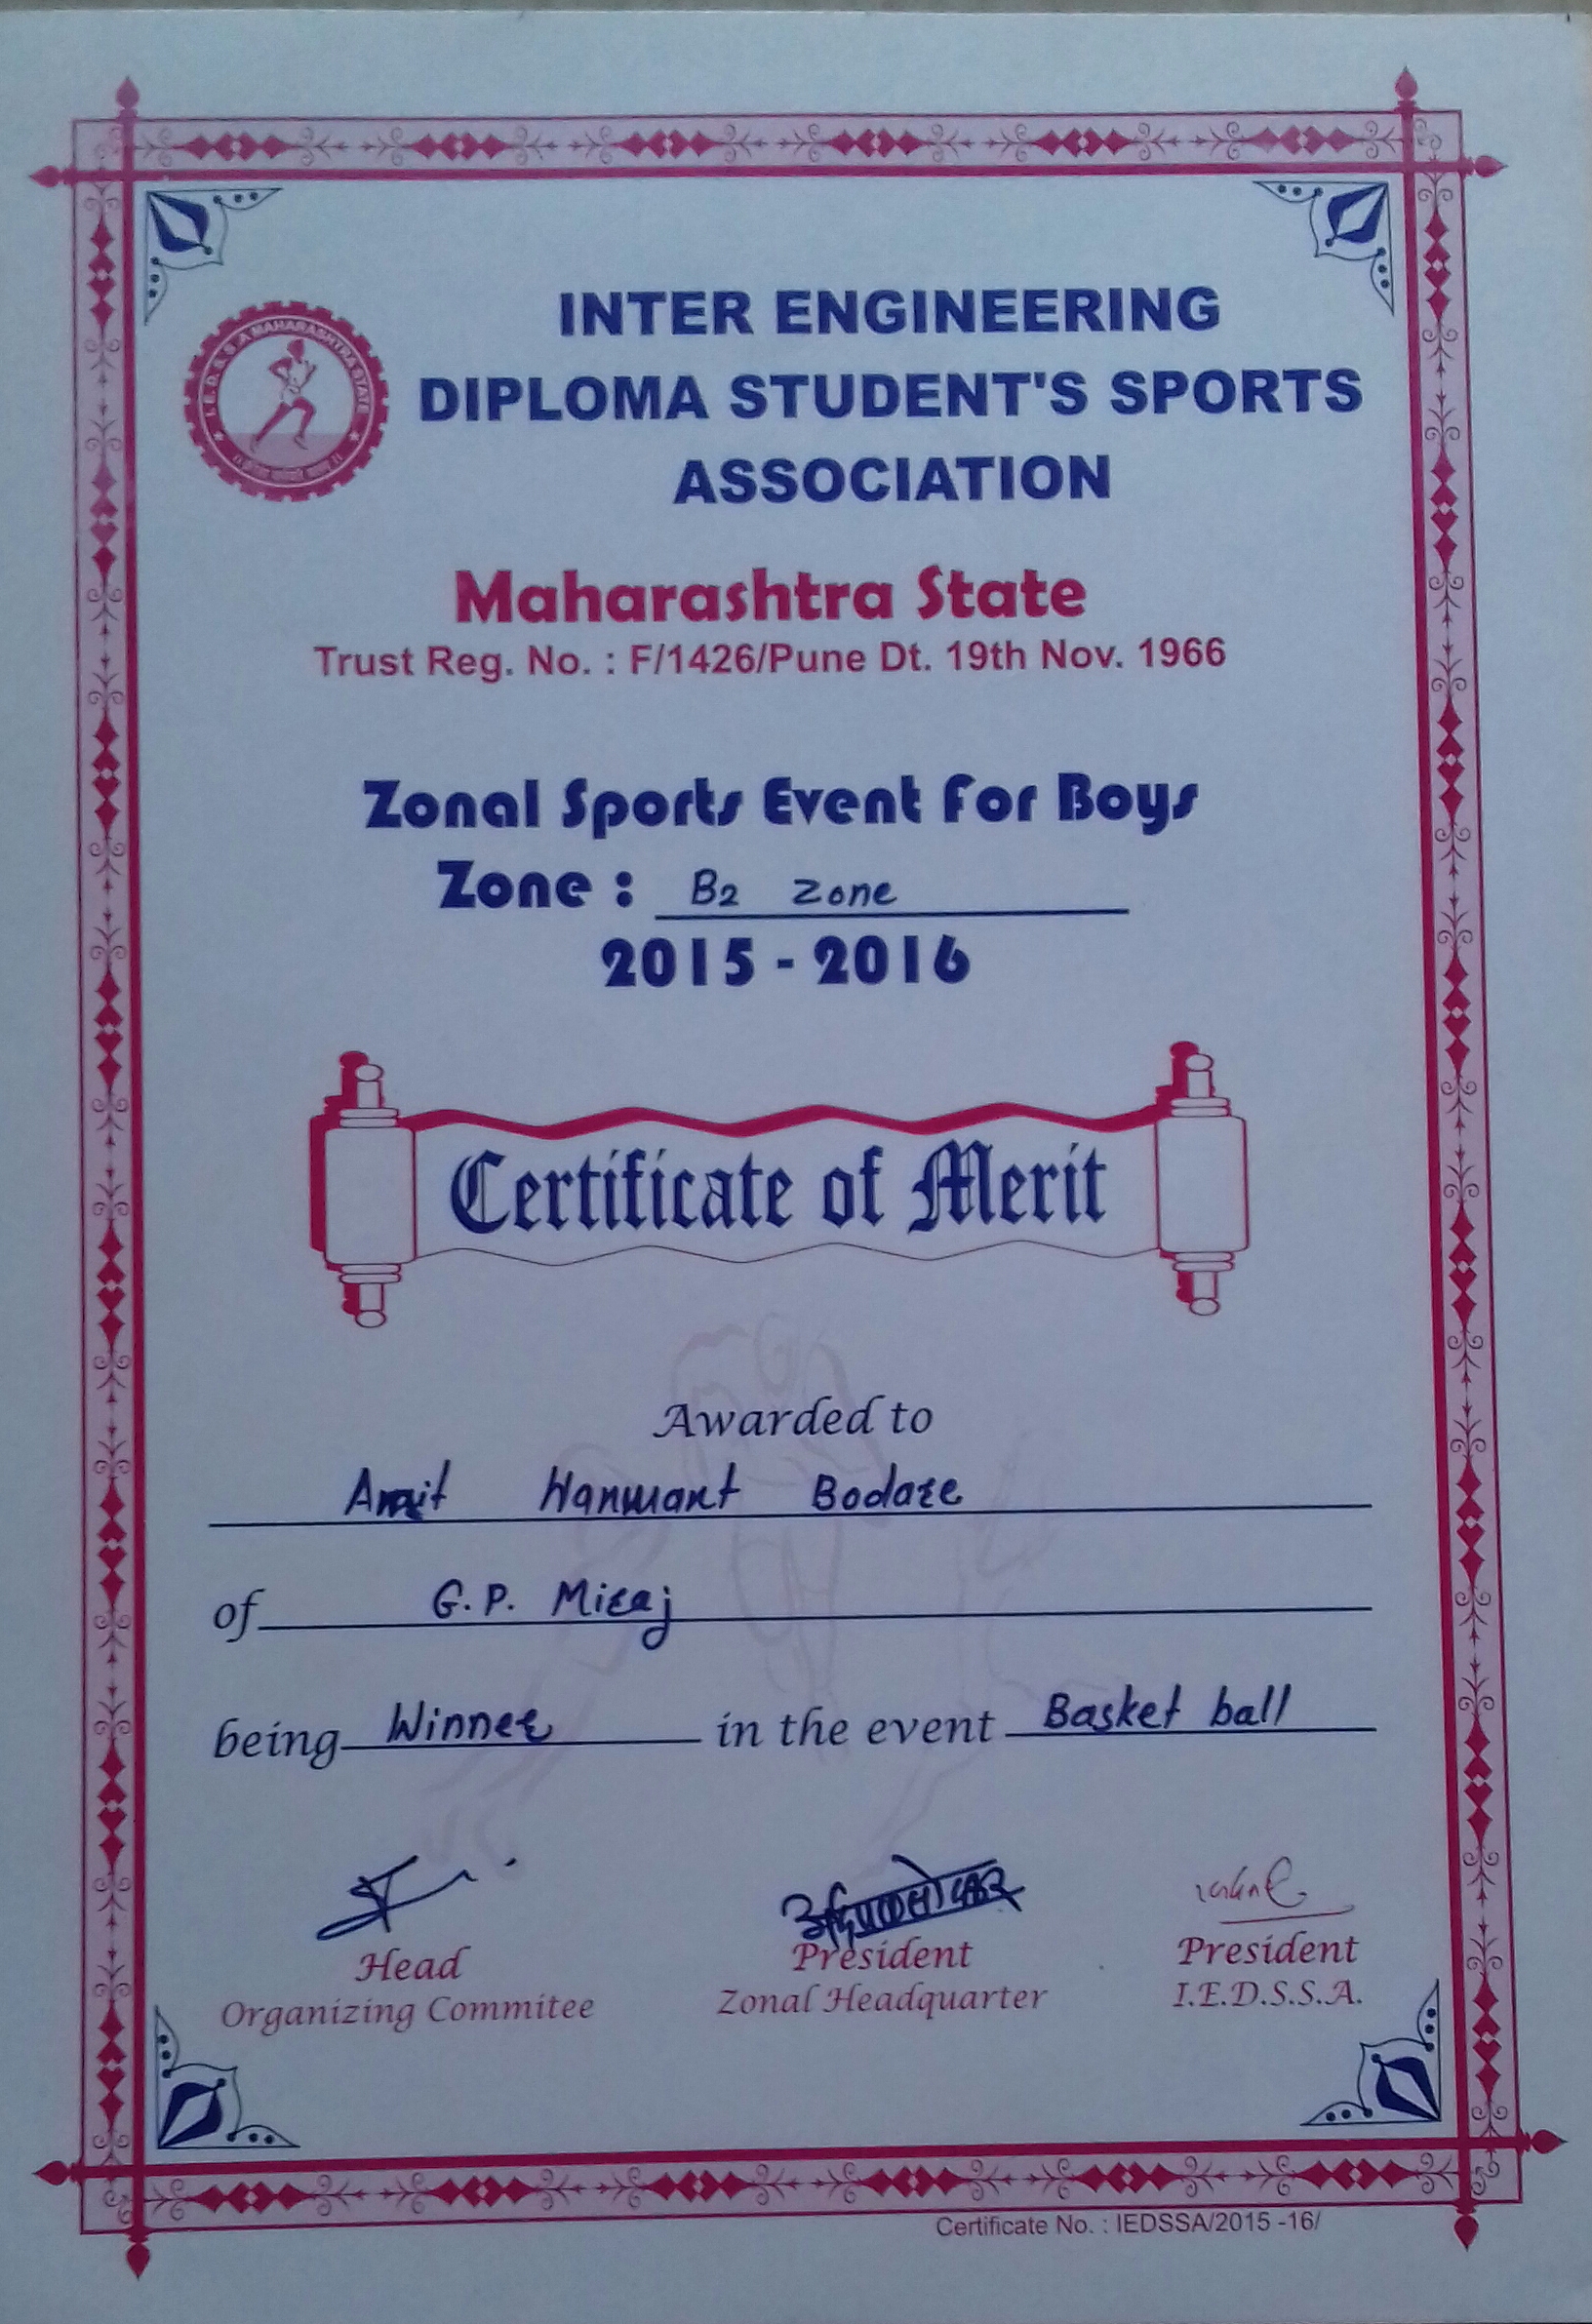 I.E.D.S.S.A MAHARASHTRA STATE
INTER ENGINEERING
DIPLOMA STUDENT'S SPORTS
ASSOCIATION
Maharashtra State
Trust Reg. No. : F/1426/Pune Dt. 19th Nov. 1966
Zonal Sports Event For Boys
Zone : B2 Zone
2015 - 2016
Certificate of Merit
Awarded to
Hanmant Bodare
of G.P. Miraj
being Winner in the event Basket ball
Head
Organizing Commitee
President
Zonal Headquarter
President
I.E.D.S.S.A.
Certificate No. : IEDSSA/2015 -16/